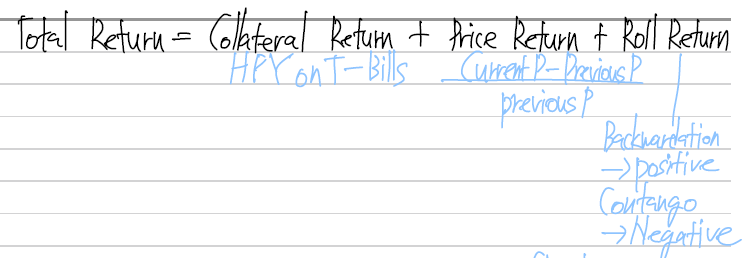 Total Return = Collateral Return + Price Return + Roll Return
HPY on T-Bills
Current P - Previous P
previous P
Backwardation
→ positive
Contango
→ Negative